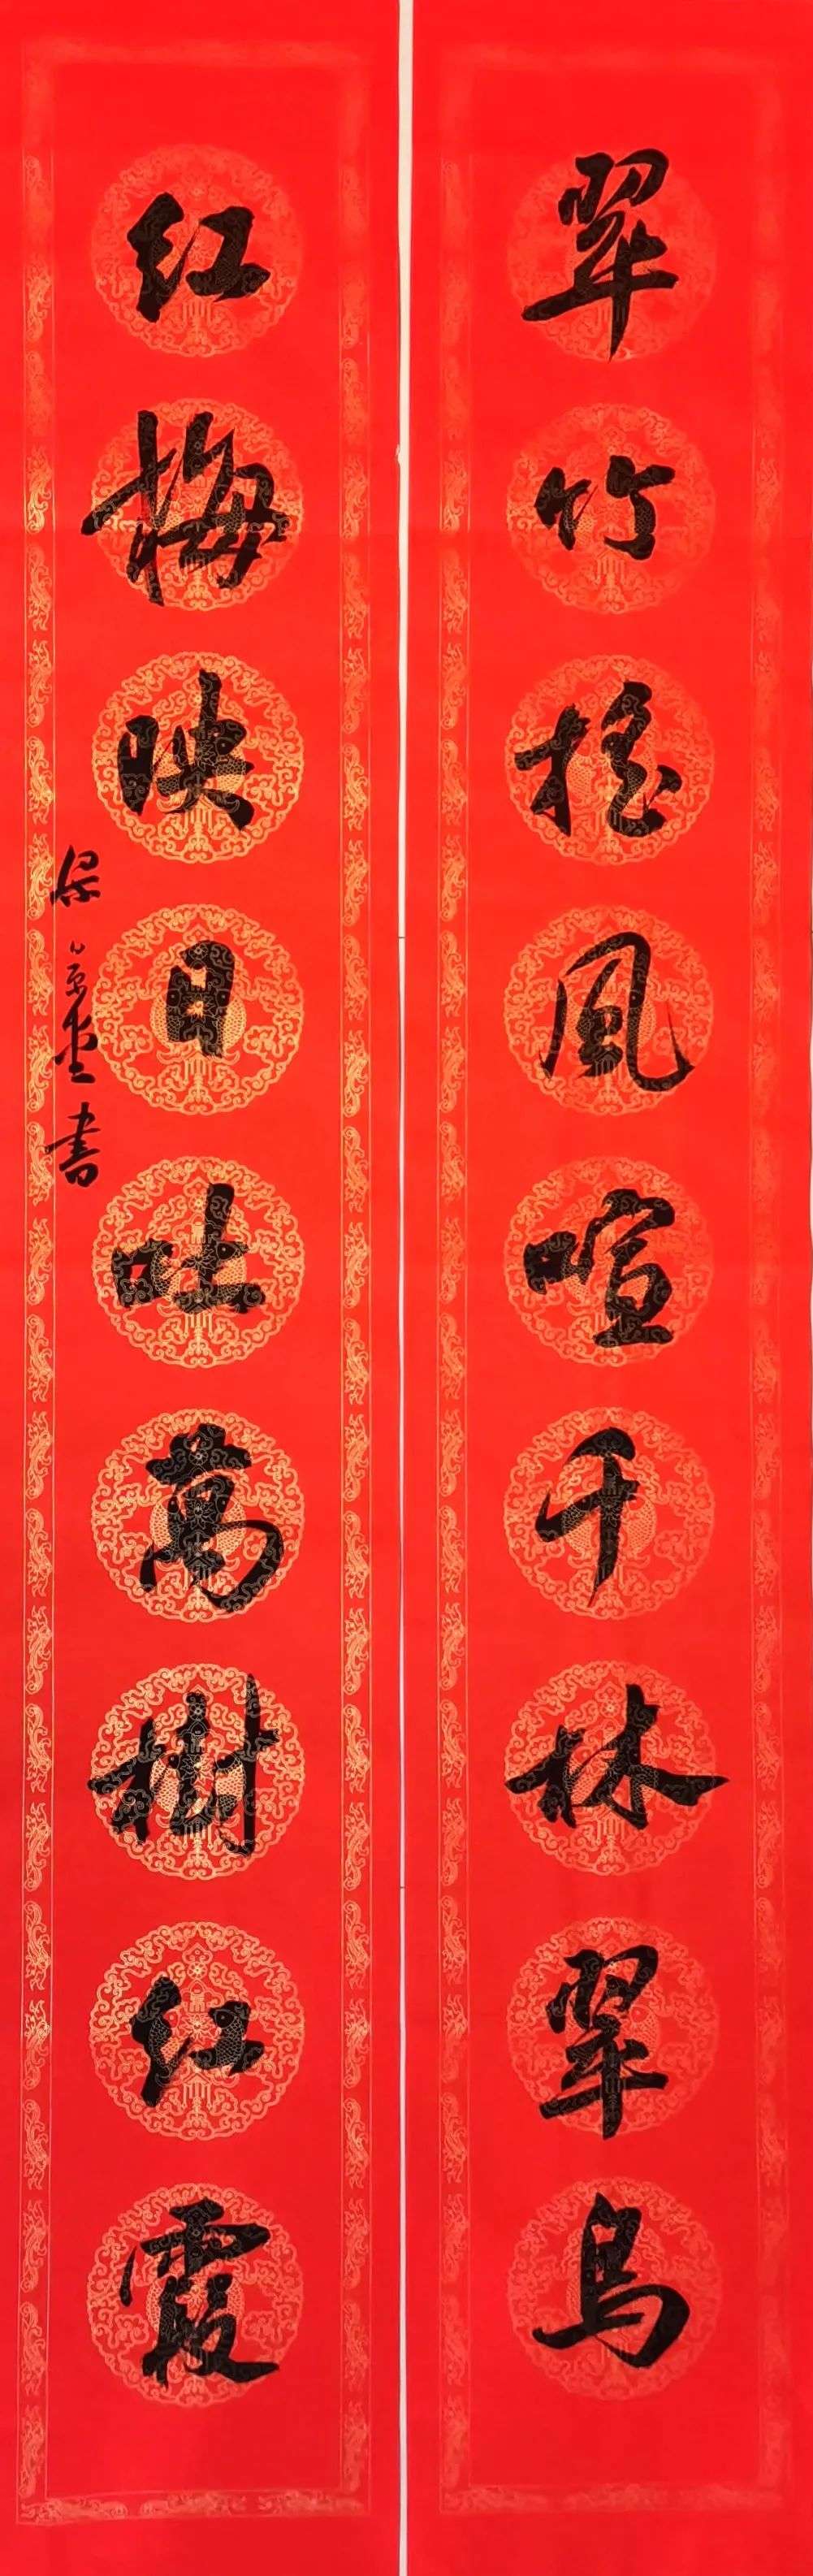 翠竹摇風喧千林翠鳥
红梅映日吐萬樹红霞
梁景堂書